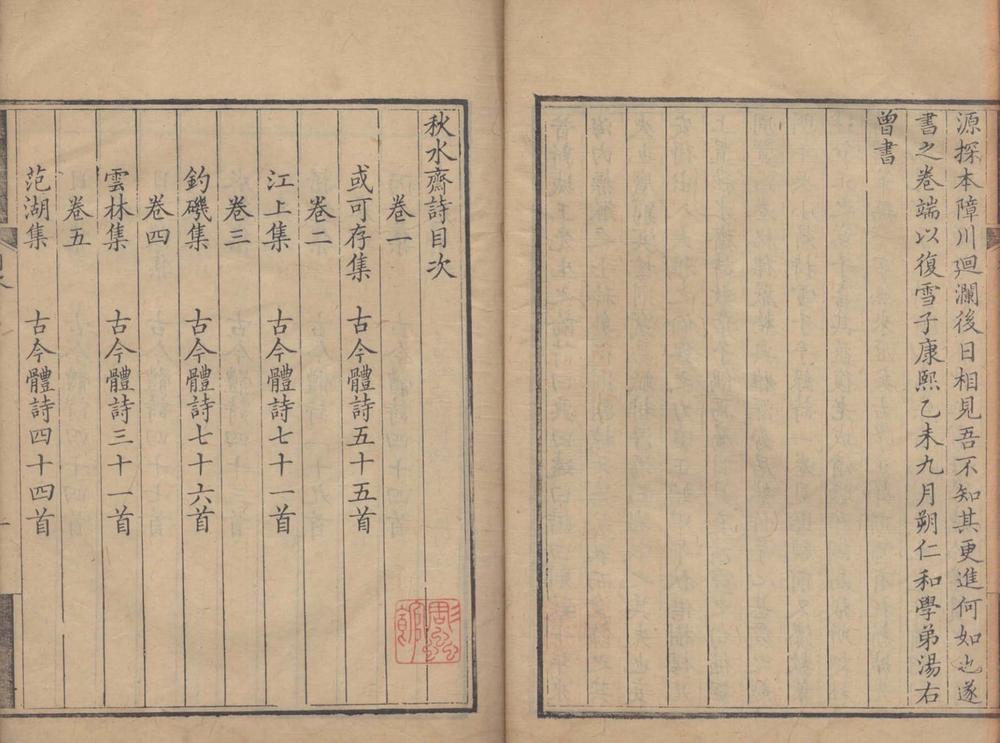 源探本障川廻瀾後日相見吾不知其更進何如也遂
書之卷端以復雪子康熙乙未九月朔仁和學弟湯右
曾書
秋水齋詩目次
卷一
或可存集 古今體詩五十五首
卷二
江上集 古今體詩七十一首
卷三
釣磯集 古今體詩七十六首
卷四
雲林集 古今體詩三十一首
卷五
范湖集 古今體詩四十四首